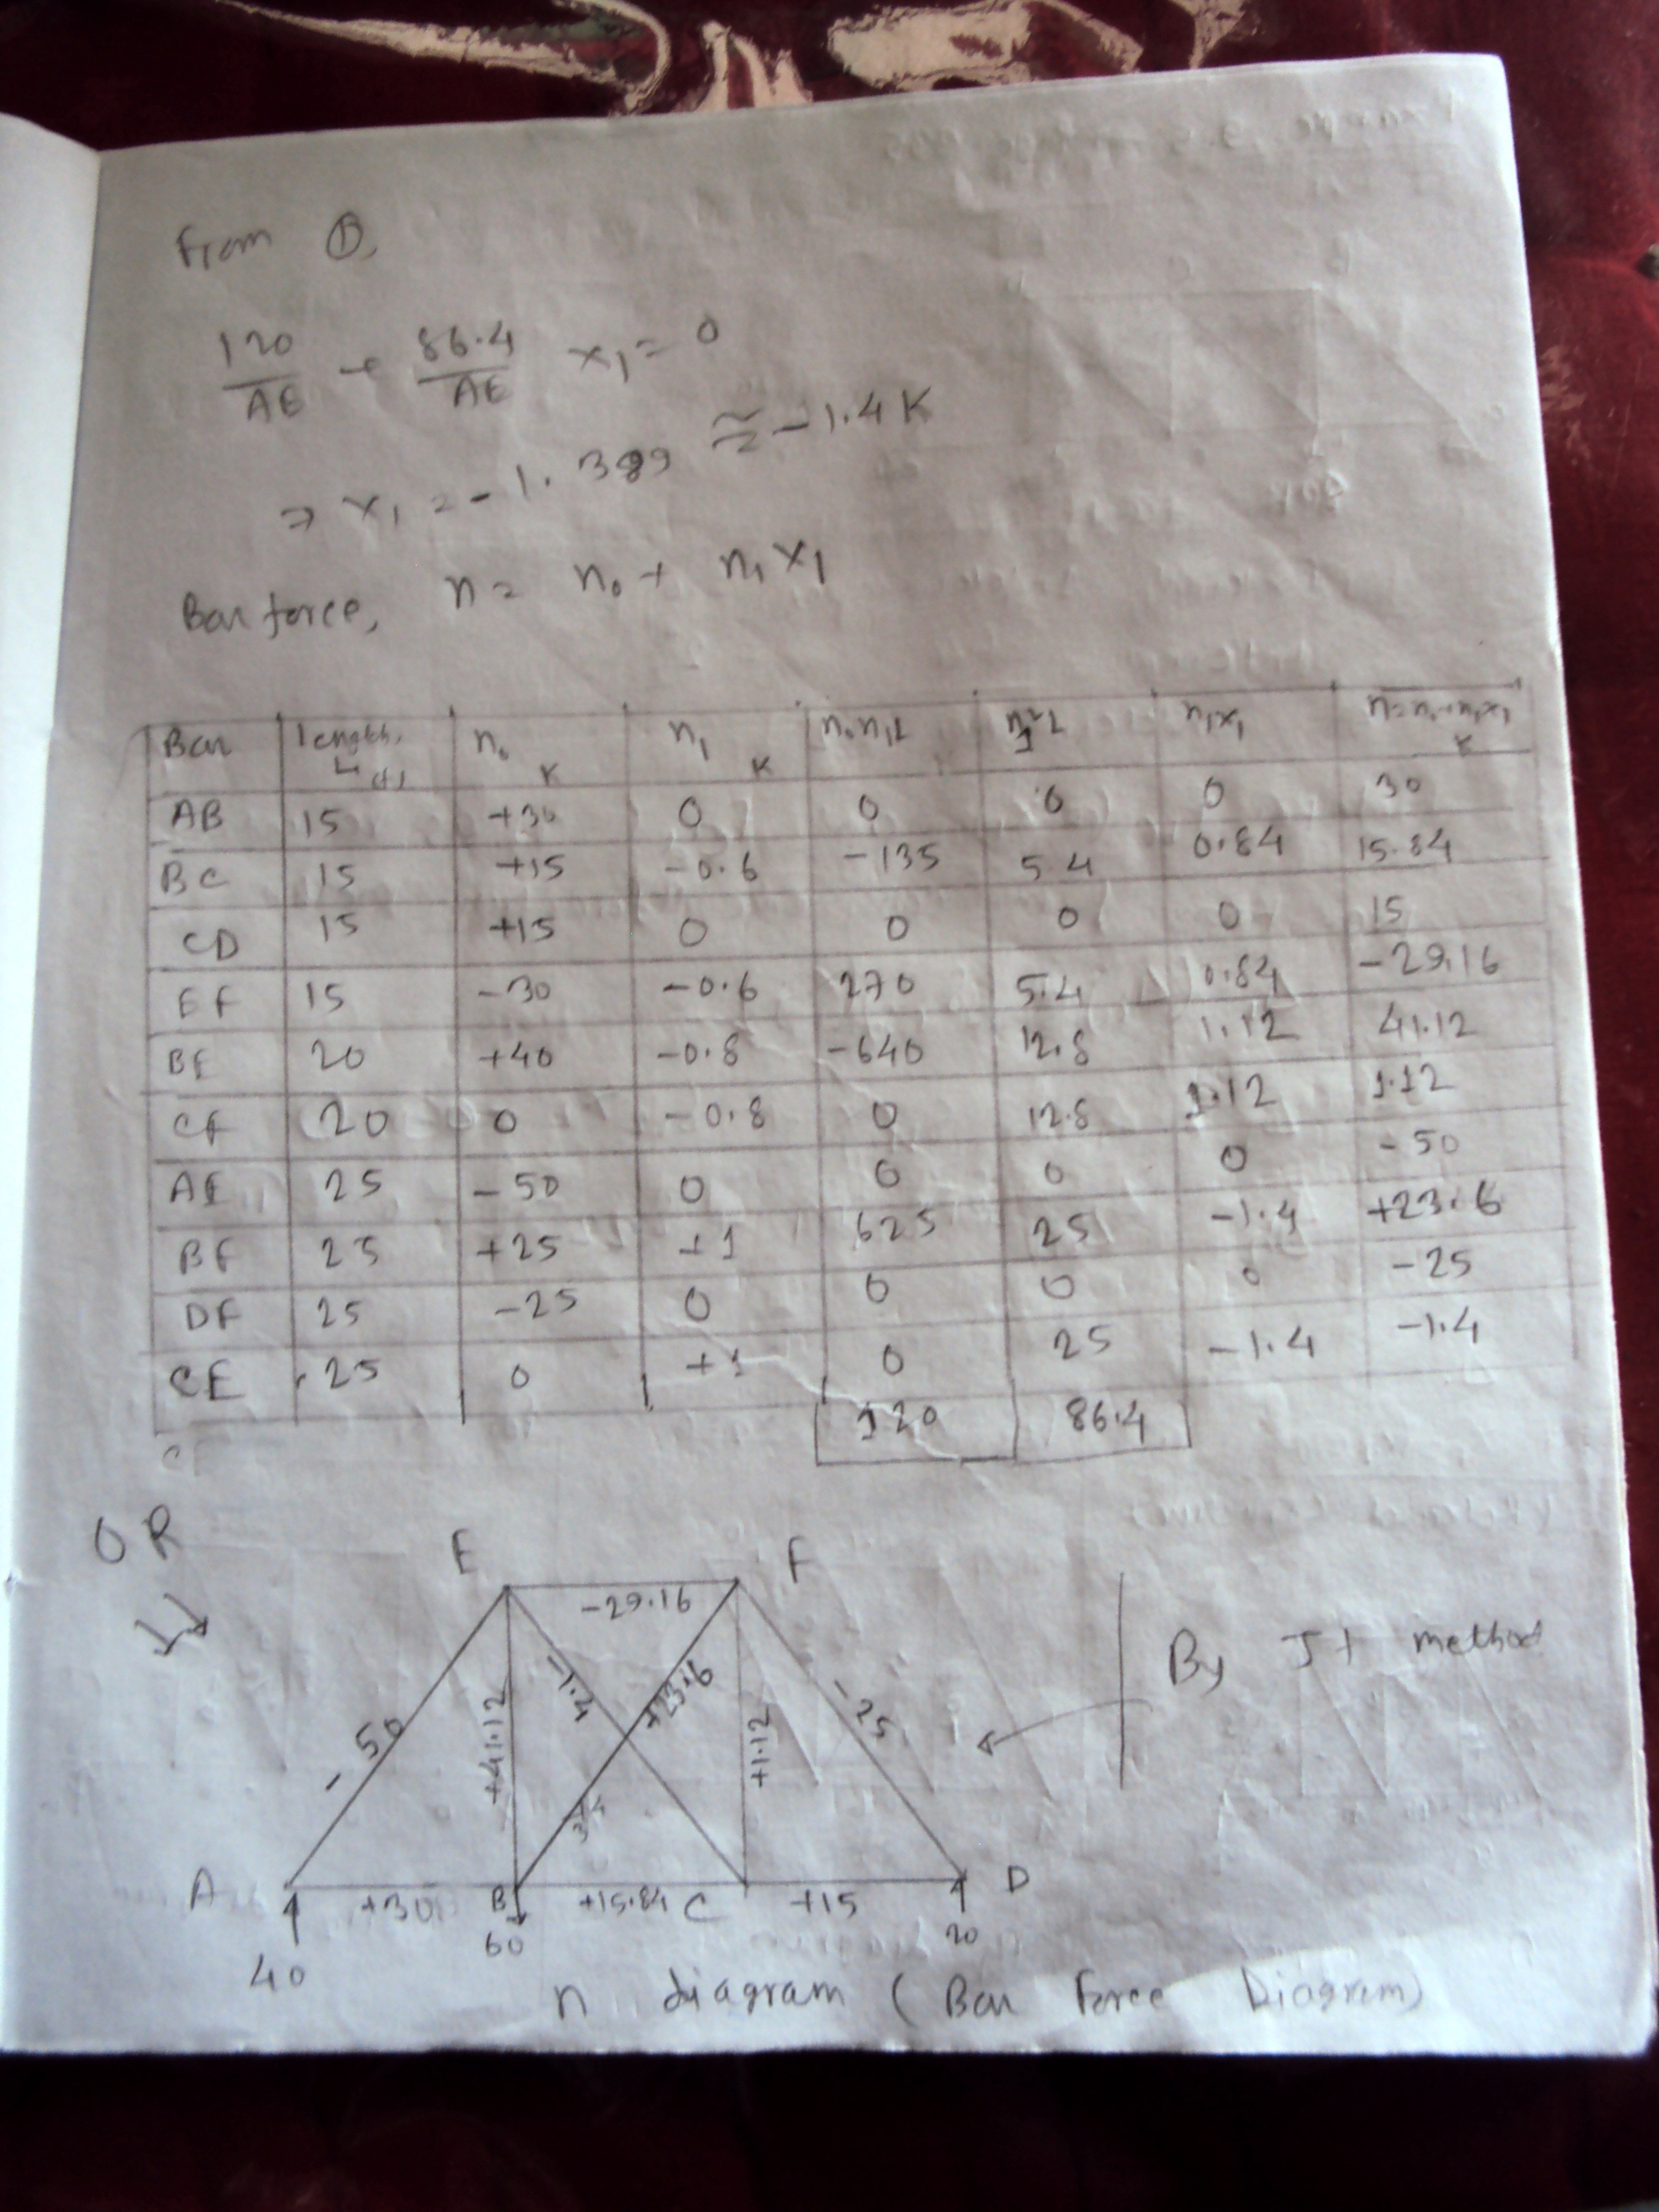 From ①,
120/AE + 86.4/AE x₁ = 0
⇒ x₁ = -1.389 ≅ -1.4 K
Bar force, n = n₀ + n₁x₁
Bar | length, L (ft) | n₀ K | n₁ K | n₀n₁L | n₁²L | n₁x₁ | n=n₀+n₁x₁ K
AB | 15 | +30 | 0 | 0 | 0 | 0 | 30
BC | 15 | +15 | -0.6 | -135 | 5.4 | 0.84 | 15.84
CD | 15 | +15 | 0 | 0 | 0 | 0 | 15
EF | 15 | -30 | -0.6 | 270 | 5.4 | 0.84 | -29.16
BE | 20 | +40 | -0.8 | -640 | 12.8 | 1.12 | 41.12
CF | 20 | 0 | -0.8 | 0 | 12.8 | 1.12 | 1.12
AE | 25 | -50 | 0 | 0 | 0 | 0 | -50
BF | 25 | +25 | +1 | 625 | 25 | -1.4 | +23.6
DF | 25 | -25 | 0 | 0 | 0 | 0 | -25
CE | 25 | 0 | +1 | 0 | 25 | -1.4 | -1.4
120 | 86.4
OR
E F
-29.16
By Jt method
-50 +41.12 -1.4 +23.6 +1.12 -25
A +30 B +15.84 C +15 D
40 60 20
n diagram (Bar Force Diagram)